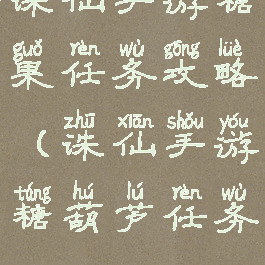 诛仙手游糖
guǒ rèn wù gōng lüè
果任务攻略
zhū xiān shǒu yóu
（诛仙手游
táng hú lú rèn wù
糖葫芦任务